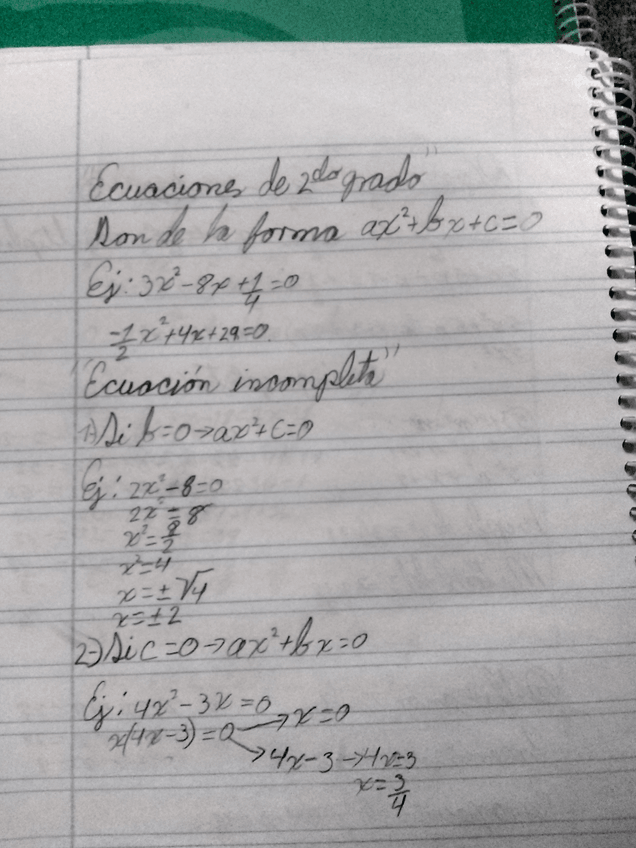 "Ecuaciones de 2do grado"
Son de la forma ax²+bx+c=0
Ej: 3x²-8x+1/4=0
-1/2x²+4x+29=0.
"Ecuación incompleta"
1) Si b=0→ax²+c=0
Ej: 2x²-8=0
2x²=8
x²=8/2
x²=4
x=±√4
x=±2
2-) Si c=0→ax²+bx=0
Ej: 4x²-3x=0
x(4x-3)=0 → x=0
→ 4x-3→4x=3
x=3/4